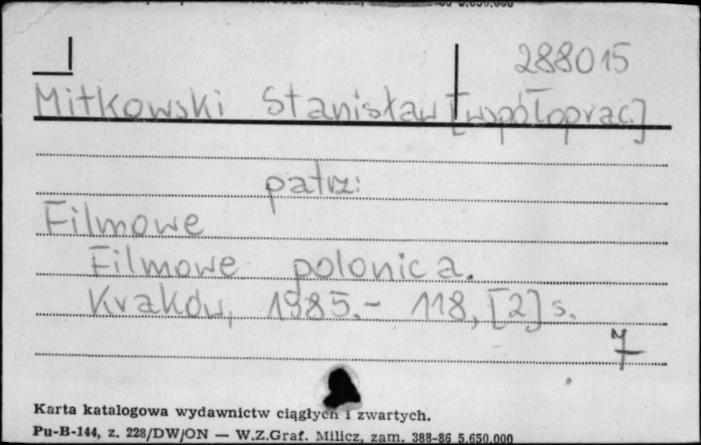 288015
Mitkowski Stanisław [współoprac.]
patrz:
Filmowe
Filmowe polonica.
Kraków, 1985.- 118, [2] s.
7
Karta katalogowa wydawnictw ciągłych i zwartych.
Pu-B-144, z. 228/DW/ON — W.Z.Graf. Milicz, zam. 388-86 5.650.000